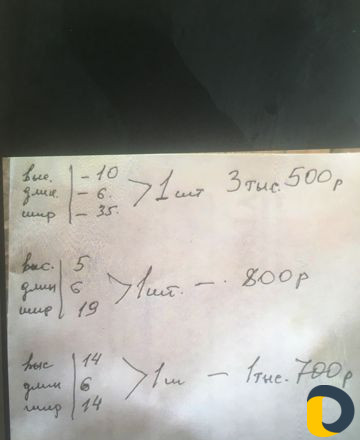 выс. | - 10
длин. | - 6. > 1 шт 3 тыс. 500 р
шир | - 35.
выс. | 5
длин | 6 > 1 шт. - 800 р
шир | 19
выс | 14
длин | 6 > 1 ш - 1 тыс. 700 р
шир | 14